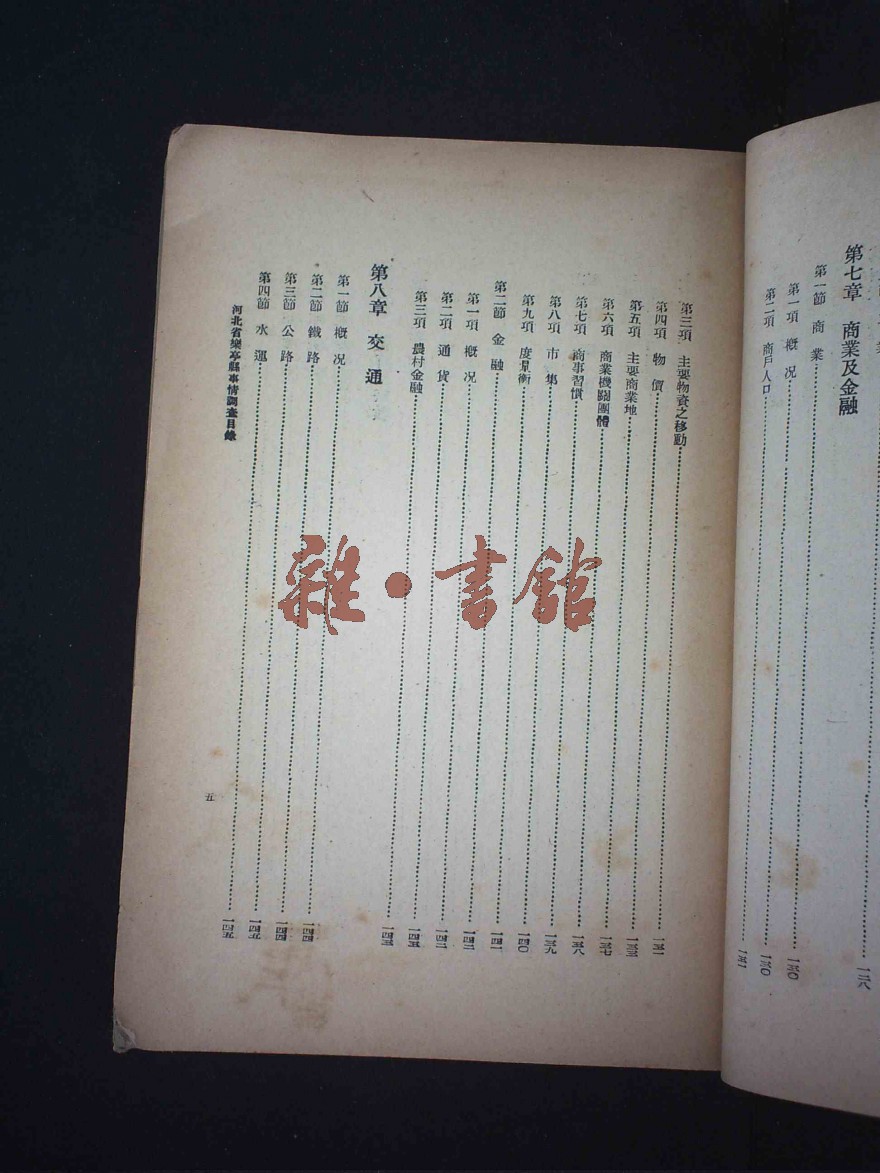 一二八
第七章 商業及金融
第一節 商業……一三〇
第一項 概況……一三〇
第二項 商戶人口……一三一
第三項 主要物資之移動……一三一
第四項 物價……一三三
第五項 主要商業地……一三七
第六項 商業機關團體……一三八
第七項 商事習慣……一三九
第八項 市集……一四〇
第九項 度量衡……一四一
第二節 金融……一四二
第一項 概況……一四二
第二項 通貨……一四三
第三項 農村金融……一四三
第八章 交通
第一節 概況……一四四
第二節 鐵路……一四四
第三節 公路……一四五
第四節 水運……一四五
河北省樂亭縣事情調查目錄
五
雜·書館